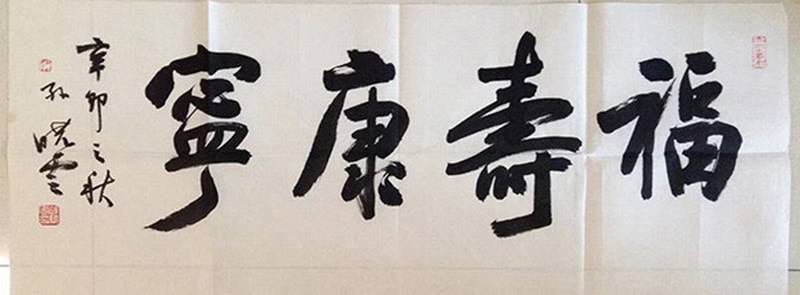 福壽康寧
辛卯之秋
孙晓云